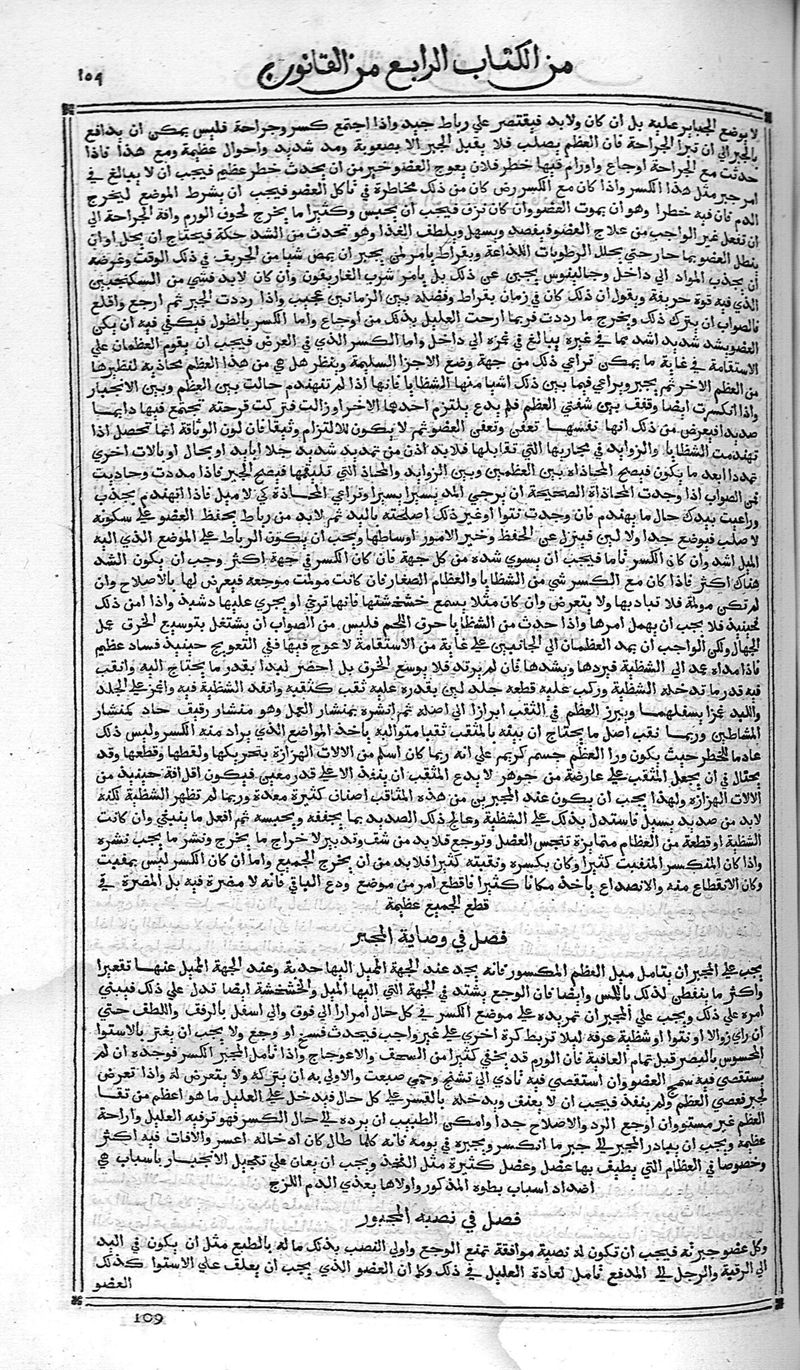 من الكتاب الرابع من القانون
١٥٩
لا يوضع الجباير عليه بل ان كان ولابد فيقتصر علي رباط جيد واذا اجتمع كسر وجراحة فليس يمكن ان يدافع
بالجبر الي ان تبرا الجراحة فان العظم يصلب فلا يقبل الجبر الا بصعوبة ومد شديد واحوال عظيمة ومع هذا فاذا
حدثت مع الجراحة اوجاع واورام فيها خطر فلان يعوج العضو خير من ان يحدث خطر عظيم فيجب ان لا يبالغ في
امر جبر مثل هذا الكسر واذا كان مع الكسر رض كان من ذلك مخاطرة في تاكل العضو فيجب ان يشرط الموضع ليخرج
الدم فان فيه خطرا وهو ان يموت العضو وان كان نزف فيجب ان يحبس وكثيرا ما يخرج لخوف الورم وافة الجراحة الي
ان تفعل غير الواجب من علاج العضو فيفصد ويسهل ويلطف الغذا وهو تحدث من الشد حكة فيحتاج ان يحل او ان
ينطل العضو بما حار حتي يحلل الرطوبات اللذاعة وبقراط يامر لمن يجبر ان يمص شيا من الخربق في ذلك الوقت وغرضه
ان يجذب المواد الي داخل وجالينوس يجبن عن ذلك بل يامر بشرب الغاريقون وان كان لابد فشي من السكنجبين
الذي فيه قوة خربقة ويقول ان ذلك كان في زمان بقراط وفضله بين الزمانين عجيب واذا رددت الجبر ثم ارجع واقلع
فالصواب ان يترك ذلك ويخرج ما رددت فربما ارحت العليل بذلك من اوجاع واما الكسر بالطول فيكفي فيه ان يكن
العضو بشد شديد اشد مما في غيره يبالغ في غمزه الي داخل واما الكسر الذي في العرض فيجب ان يقوم العظمان علي
الاستقامة في غاية ما يمكن تراعي ذلك من جهة وضع الاجزا السليمة وينظر هل هي من هذا العظم محاذية لنظيرها
من العظم الاخر ثم يجبر ويراعي فيما بين ذلك اشيا منها الشظايا فانها اذا لم تنهندم حالت بين العظم وبين الانجبار
واذا انكسرت ايضا وقفت بين شفتي العظم فلم يدع يلتزم احدها الاخر او زالت فتركت فرحته تجتمع فيها دايما
صديد فيعرض من ذلك انها نفسها تعفن وتعفن العضو ثم لا يكون للالتزام وثيقا فان لون الوثاقة انما تحصل اذا
تهندمت الشظايا والزوايد في مجاريها التي تقابلها فلابد اذن من تمديد شديد جدا باليد او بحبال او بالات اخري
تمددا ابعد ما يكون فيصح المحاذاة بين العظمين وبين الزوايد والمحاذ التي تليقها فيصح الجبر فاذا مددت وحاذيت
فمن الصواب اذا وجدت المحاذاة الصحيحة ان يرخي المد يسيرا يسيرا وتراعي المحاذة كي لا ميل فاذا انهندم يجذب
وراعيت بيدك حال ما يهندم فان وجدت نتوا او غير ذلك اصلحته باليد ثم لابد من رباط يحفظ العضو علي سكونه
لا صلب فيوضع جدا ولا لين فينزل عن الحفظ وخير الامور اوساطها ويجب ان يكون الرباط علي الموضع الذي اليه
الميل اشد وان كان الكسر تاما فيجب ان يسوي شده من كل جهة فان كان الكسر في جهة اكثر وجب ان يكون الشد
هناك اكثر فاذا كان مع الكسر شي من الشظايا والعظام الصغار فان كانت مولمة موجعة فيعرض لها بالاصلاح وان
لم تكن مولمة فلا تبادبها ولا يتعرض وان كان مثلا يسمع خشخشتها فانها ترتخي او يجري عليها دشيد واذا امن ذلك
فحينيذ فلا يجب ان يهمل امرها واذا حدث من الشظايا خرق اللحم فليس من الصواب ان يشتغل بتوسيع الخرق عمل
الجهال ولكن الواجب ان يمد العظمان الي الجانبين علي غاية من الاستقامة لا عوج فيها ففي التعويج حينيذ فساد عظيم
فاذا مداه عمد الي الشظية فبردها ويشدها فان لم يرتد فلا يوسع الخرق بل احضر لبدا بقدر ما يحتاج اليه واثقب
فيه قدر ما تدخله الشظية وركب عليه قطعه جلد لين بقدره عليه ثقب كثقبه وانفذ الشظية فيه واغمز علي الجلد
واللبد غمزا يسفلهما ويبرز العظم في الثقب ابرازا الي اصله ثم انشره بمنشار العمل وهو منشار رقيق حاد كمنشار
المشاطين وربما ثقب اصل ما يحتاج ان يبته بالمثقب ثقبا متواليه ياخذ المواضع الذي يراد منه الكسر وليس ذلك
عادما للخطر حيث يكون ورا العظم جسم كريم علي انه ربما كان اسلم من الالات الهزازة بتحريكها ولقطها وقطعها وقد
يحتال في ان يجعل المثقب علي عارضة من جوهر لا يدع المثقب ان ينفذ الا علي قدر معين فيكون اقل افة حينيذ من
الالات الهزازه ولهذا يجب ان يكون عند المجبرين من هذه المثاقب اصناف كثيرة معدة وربما لم تظهر الشظية لكنه
لابد من صديد يسيل فاستدل بذلك علي الشظية وعالج ذلك الصديد بما يجففه ويحبسه ثم افعل ما ينبغي وان كانت
الشظية او قطعة من العظام متمايزة تنخس العضل وتوجع فلابد من شق وتدبير لاخراج ما يخرج ونشر ما يجب نشره
واذا كان المنكسر المنفتت كثيرا وكان بكسره وتفتيته كثيرا فلابد من ان يخرج الجميع واما ان كان الكسر ليس بمفتت
وكان الانقطاع منه والانصداع ياخذ مكانا كثيرا فاقطع امر من موضع ودع الباقي فانه لا مضرة فيه بل المضرة في
قطع الجميع عظيمة
فصل في وصاية المجبر
يجب علي المجبر ان يتامل ميل العظم المكسور فانه يجد عند الجهة المميل اليها حدبة وعند الجهة المميل عنها تقعيرا
واكثر ما ينفطي لذلك باللمس وايضا فان الوجع يشتد في الجهة التي اليها الميل والخشخشة ايضا تدل علي ذلك فيبني
امره علي ذلك ويجب علي المجبر ان تمر يده علي موضع الكسر في كل حال امرارا الي فوق والي اسفل بالرفق واللطف حتي
ان راي زوالا او نتوا او شظية عرفه ليلا تربط كرة اخري علي غير واجب فيحدث فسخ او وجع ولا يجب ان يغتر بالاستوا
المحسوس بالبصر قبل تمام العافية فان الورم قد يخفي كثيرا من السحف والاعوجاج واذا تامل المجبر الكسر فوجده ان لم
يستقصي فيه سمج العضو وان استقصي فيه تادي الي تشنج وحمي صعبت والاولي به ان يتركه ولا يتعرض له واذا تعرض
لجبر فعصي العظم ولم ينفذ فيجب ان لا يعنف ويدخله بالقسر علي كل حال فيدخل علي العليل ما هو اعظم من تقا
العظم غير مستو وان اوجع الرد والاصلاح جدا وامكن الطبيب ان يرده الي حال الكسر فهو ترفيه العليل واراحة
عظيمة ويجب ان يبادر المجبر الي جبر ما انكسر ويجبره في يومه فانه كلما طال كان ادخاله اعسر والافات فيه اكثر
وخصوصا في العظام التي يطيف بها عضل وعصل كثيرة مثل الفخذ ويجب ان يعان علي تعجيل الانجبار باسباب هي
اضداد اسباب بطوه المذكور واولاها بغذي الدم اللزج
فصل في نصبه المجبور
وكل عضو جبرته فيجب ان تكون له نصبة موافقة تمنع الوجع واولي النصب بذلك ما له بالطبع مثل ان يكون في اليد
الي الرقبة والرجل الي المدفع تامل لعادة العليل في ذلك وكما ان العضو الذي يجب ان يعلق علي الاستوا كذلك
العضو
109